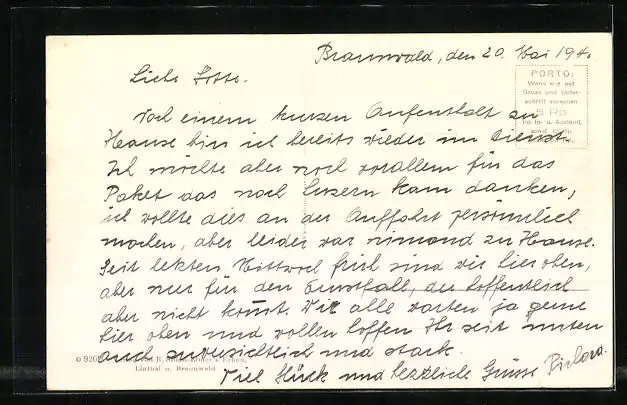 Braunwald, den 20. Mai 194.
Liebe Lotte.
PORTO:
Wenn nur mit
Gruss und Unter-
schrift versehen
5 Rp.
im In- u. Ausland,
sonst
Nach einem kurzen Aufenthalt zu
Hause bin ich bereits wieder im Dienst.
Ich möchte aber noch vorallem für das
Paket das nach Luzern kam danken,
ich wollte dies an der Auffahrt persönlich
machen, aber leider war niemand zu Hause.
Seit letzten Mittwoch früh sind wir hier oben,
aber nur für den Ernstfall, der hoffentlich
aber nicht kommt. Wir alle warten ja gerne
hier oben und wollen hoffen Ihr seit unten
auch zuversichtlich und stark.
Linthal u. Braunwald
Viel Glück und herzliche Grüsse